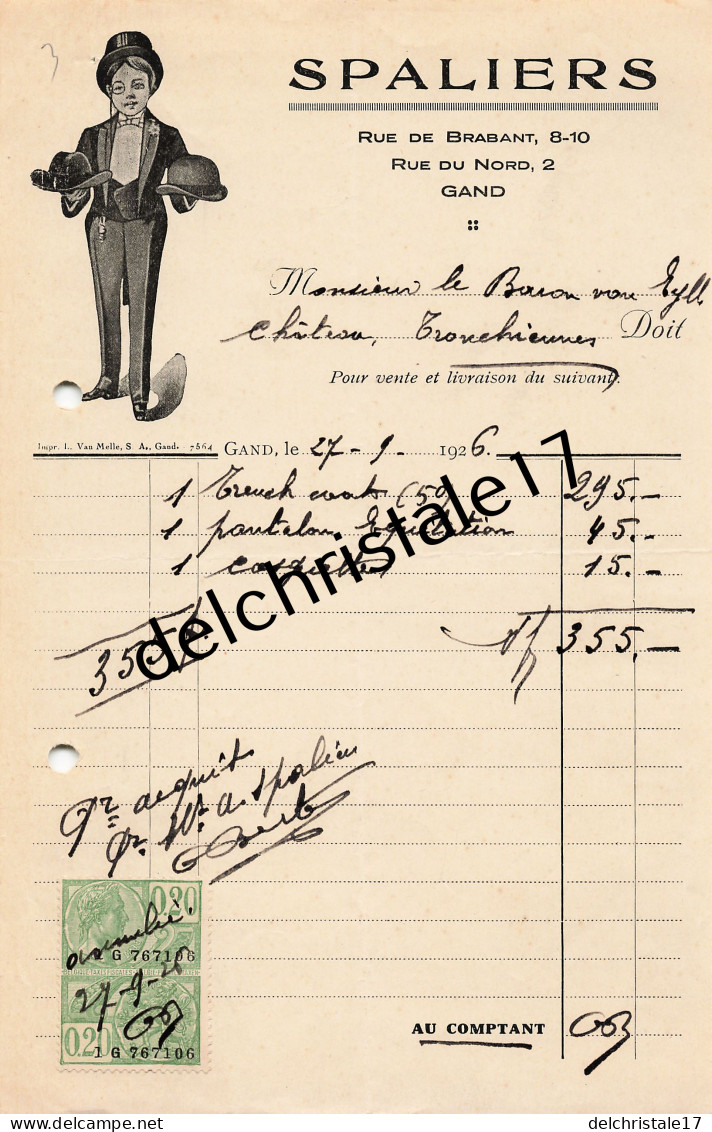 3
SPALIERS
RUE DE BRABANT, 8-10
RUE DU NORD, 2
GAND
Monsieur le Baron van Eyll
Château, Tronchiennes Doit
Pour vente et livraison du suivant.
Impr. L. Van Melle, S. A., Gand. - 7564
GAND, le 27-9-1926.
1 Trench coat (59) 295.-
1 pantalon Equitation 45.-
1 casquette 15.-
355
355.-
delchristale17
Pr acquit
Pr. Mr. A. Spaliers
0.20
annulé.
1 G 767106
27-9-26
0.20
1 G 767106
AU COMPTANT
delcampe.net
delchristale17